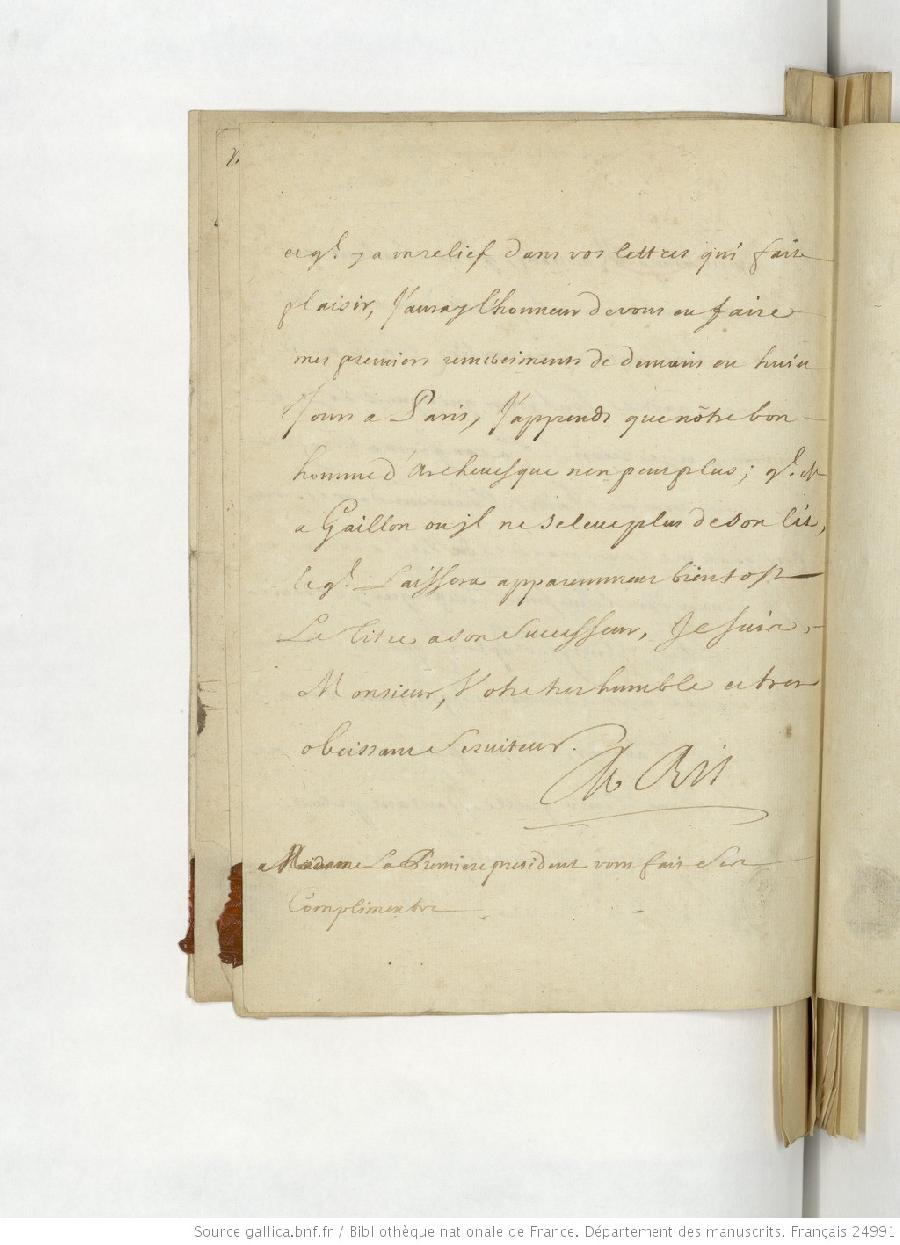 et q.l y a un relief dans vos lettres qui fait
plaisir, J'auray l'honneur de vous en faire
mes premiers remerciments de demain en huict
Jours a Paris, J'apprends que nôtre bon-
homme d'Archeuesque n'en peut plus; q.l est
a Gaillon ou jl ne se leue plus de son lit,
et q.l Laissera apparemment bientost
Le titre a son Successeur, Je suis,
Monsieur, Votre tres humble et tres
obeissant Seruiteur.
Madame La Premiere president vous fait Ses
Complimentz
Source gallica.bnf.fr / Bibliothèque nationale de France. Département des manuscrits. Français 24991